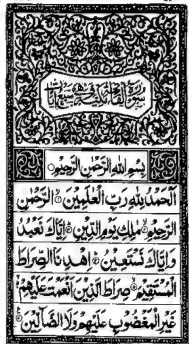 سورة الفاتحة مكية وهي سبع آيات
بِسْمِ اللهِ الرَّحْمٰنِ الرَّحِيْمِ
اَلْحَمْدُ لِلّٰهِ رَبِّ الْعٰلَمِيْنَ ۙ الرَّحْمٰنِ
الرَّحِيْمِ ۙ مٰلِكِ يَوْمِ الدِّيْنِ ؕ اِيَّاكَ نَعْبُدُ
وَاِيَّاكَ نَسْتَعِيْنُ ؕ اِهْدِنَا الصِّرَاطَ
الْمُسْتَقِيْمَ ۙ صِرَاطَ الَّذِيْنَ اَنْعَمْتَ عَلَيْهِمْ ۙ
غَيْرِ الْمَغْضُوْبِ عَلَيْهِمْ وَلَا الضَّآلِّيْنَ